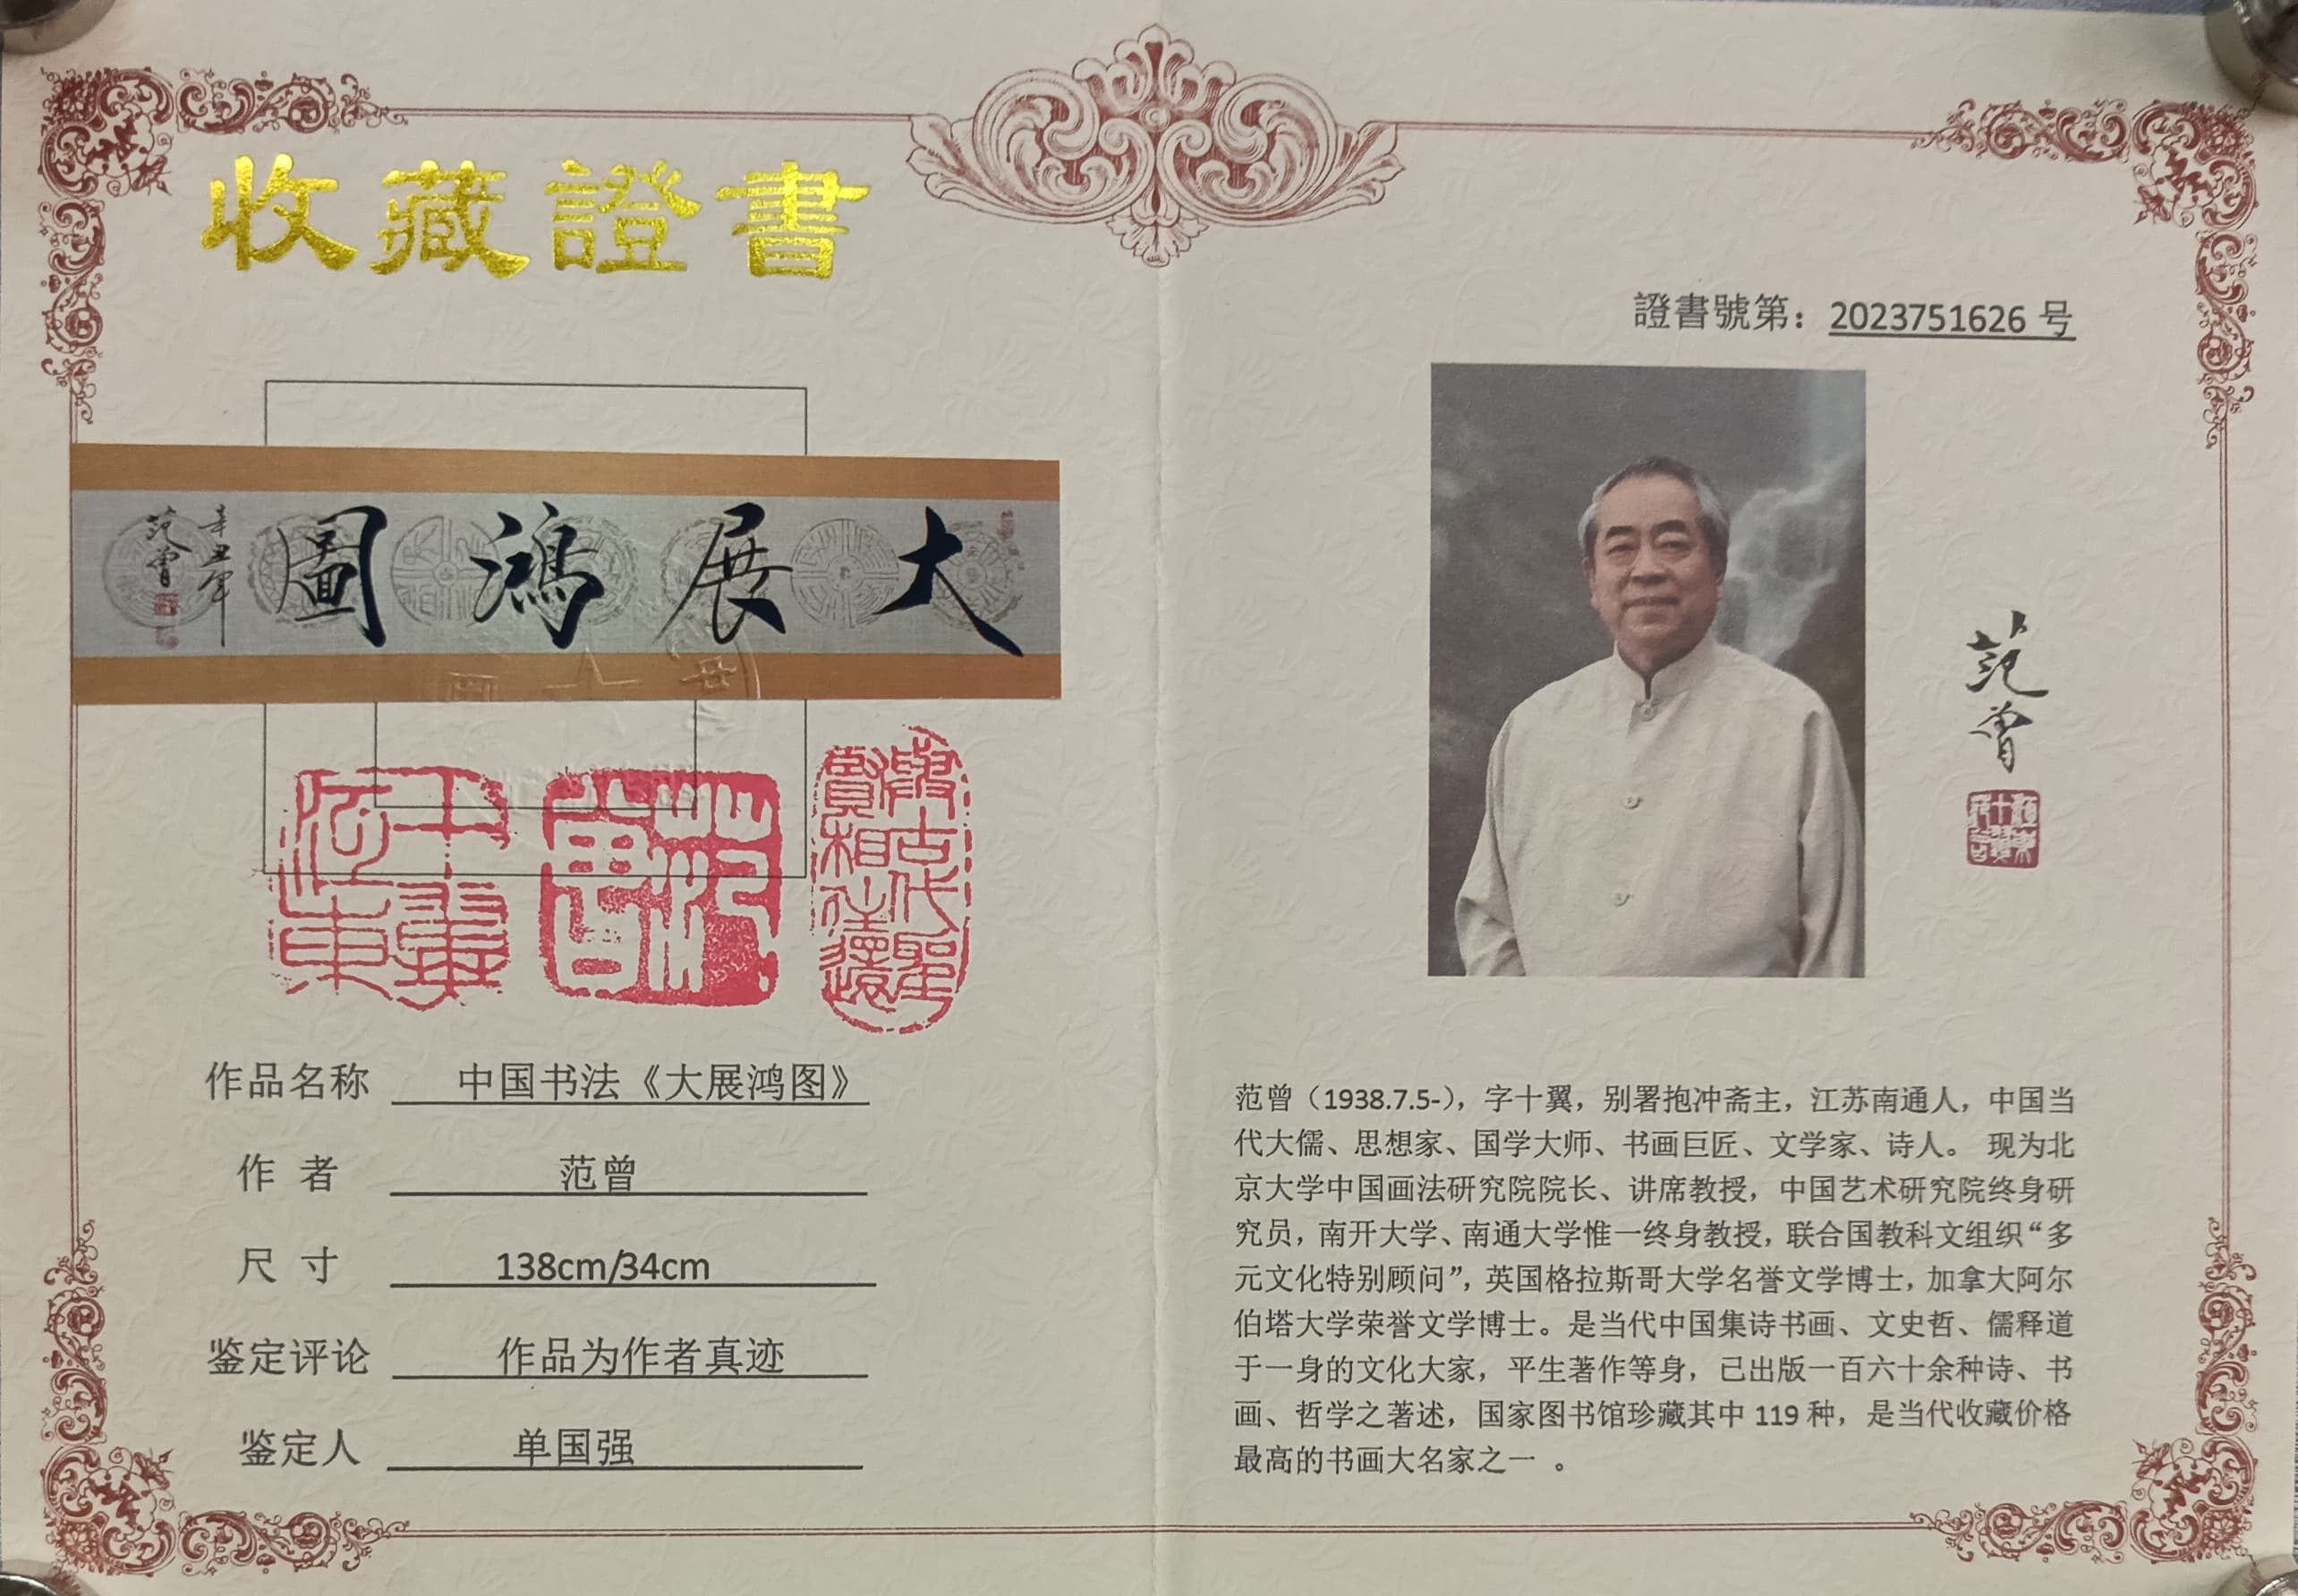 收藏證書
大展鴻圖
辛丑年
范曾
作品名称 中国书法《大展鸿图》
作 者 范曾
尺 寸 138cm/34cm
鉴定评论 作品为作者真迹
鉴定人 单国强
證書號第：2023751626 号
范曾
范曾（1938.7.5-），字十翼，别署抱冲斋主，江苏南通人，中国当
代大儒、思想家、国学大师、书画巨匠、文学家、诗人。 现为北
京大学中国画法研究院院长、讲席教授，中国艺术研究院终身研
究员，南开大学、南通大学惟一终身教授，联合国教科文组织“多
元文化特别顾问”，英国格拉斯哥大学名誉文学博士，加拿大阿尔
伯塔大学荣誉文学博士。是当代中国集诗书画、文史哲、儒释道
于一身的文化大家，平生著作等身，已出版一百六十余种诗、书
画、哲学之著述，国家图书馆珍藏其中 119 种，是当代收藏价格
最高的书画大名家之一 。